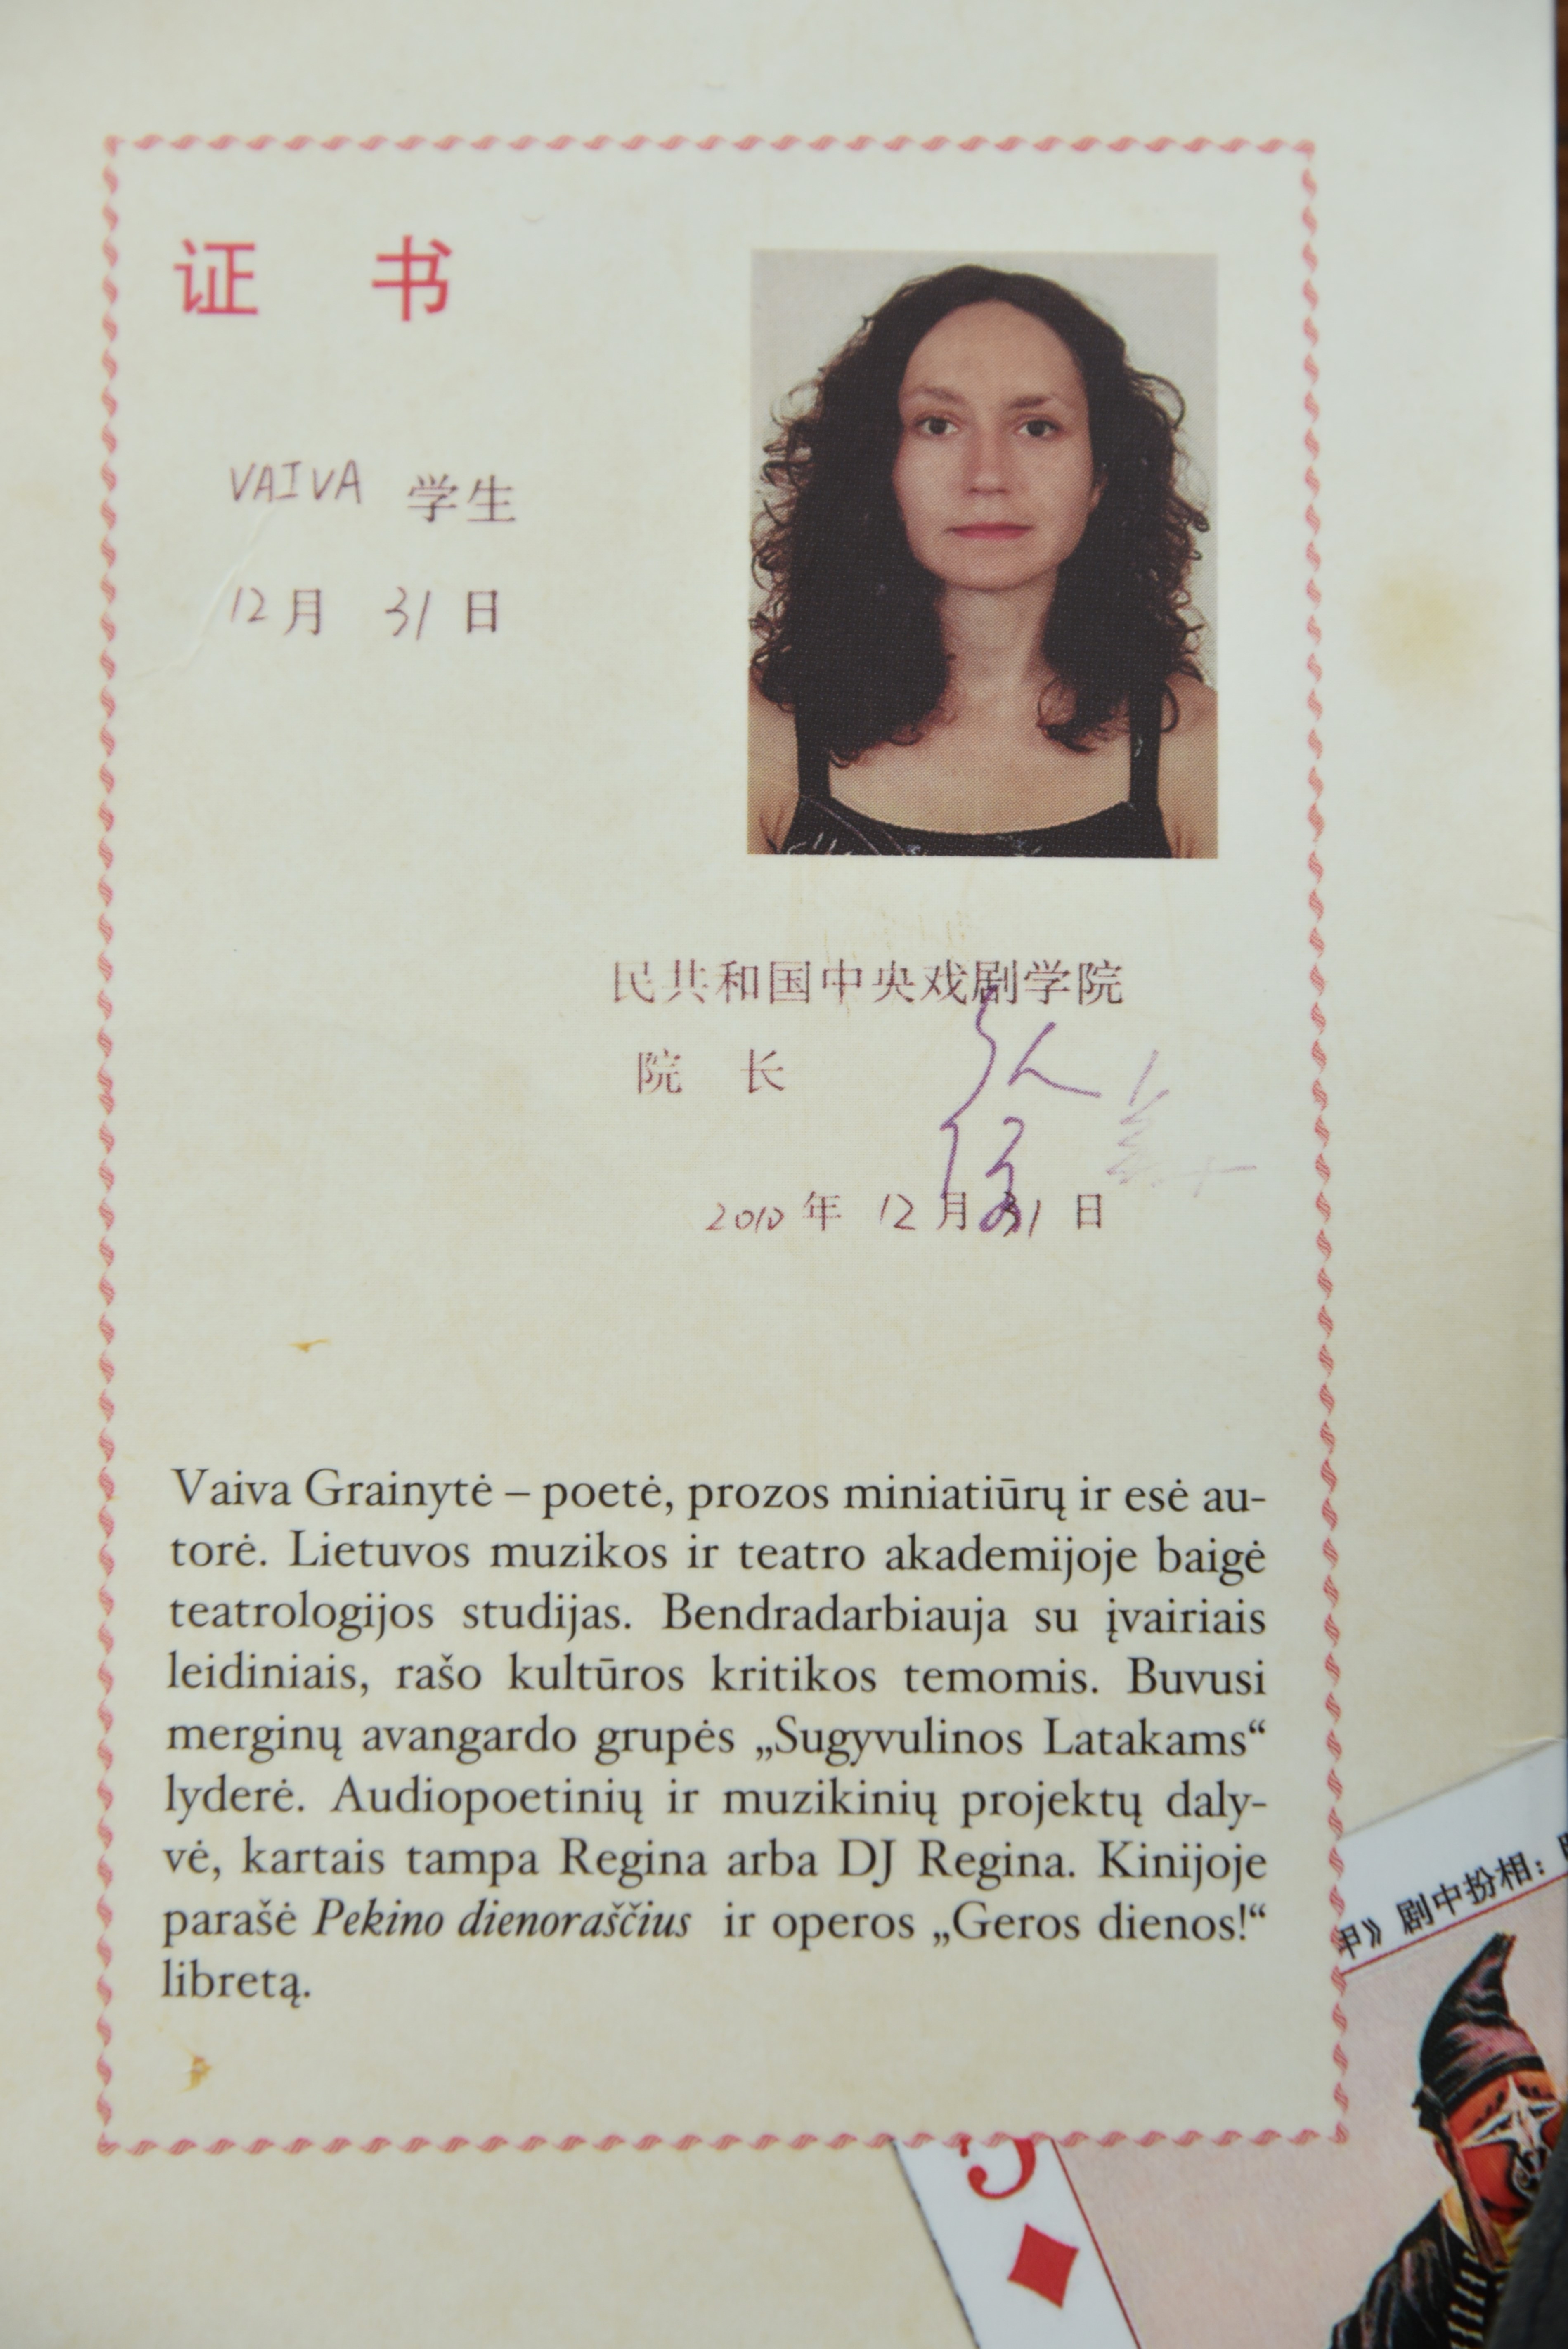 证 书
VAIVA 学生
12月 31日
民共和国中央戏剧学院
院 长
2010 年 12 月 31 日
Vaiva Grainytė – poetė, prozos miniatiūrų ir esė au-
torė. Lietuvos muzikos ir teatro akademijoje baigė
teatrologijos studijas. Bendradarbiauja su įvairiais
leidiniais, rašo kultūros kritikos temomis. Buvusi
merginų avangardo grupės „Sugyvulinos Latakams“
lyderė. Audiopoetinių ir muzikinių projektų daly-
vė, kartais tampa Regina arba DJ Regina. Kinijoje
parašė Pekino dienoraščius ir operos „Geros dienos!“
libretą.
》剧中扮相：